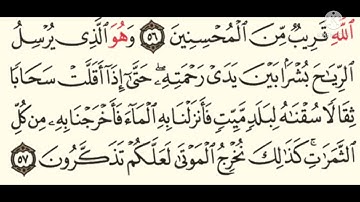 ٱللَّهِ قَرِيبٌ مِّنَ ٱلْمُحْسِنِينَ ٥٦ وَهُوَ ٱلَّذِى يُرْسِلُ
ٱلرِّيَـٰحَ بُشْرًۢا بَيْنَ يَدَىْ رَحْمَتِهِۦ ۖ حَتَّىٰٓ إِذَآ أَقَلَّتْ سَحَابًا
ثِقَالًا سُقْنَـٰهُ لِبَلَدٍ مَّيِّتٍ فَأَنزَلْنَا بِهِ ٱلْمَآءَ فَأَخْرَجْنَا بِهِۦ مِن كُلِّ
ٱلثَّمَرَٰتِ ۚ كَذَٰلِكَ نُخْرِجُ ٱلْمَوْتَىٰ لَعَلَّكُمْ تَذَكَّرُونَ ٥٧